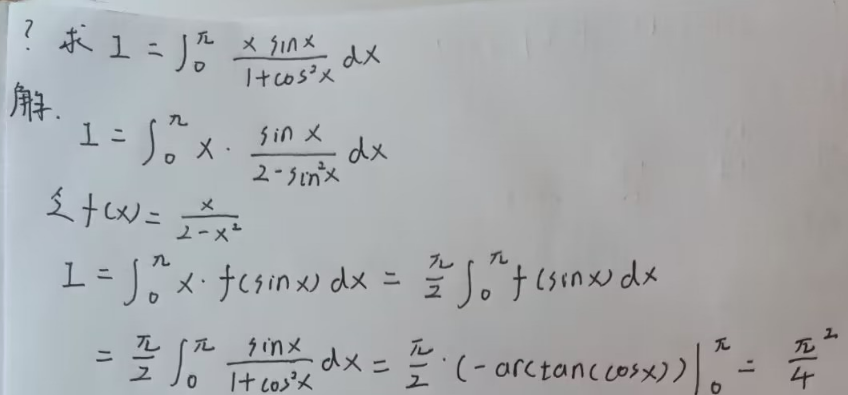 ? 求 I = ∫₀^π (x sinx)/(1+cos²x) dx
解.
I = ∫₀^π x · (sin x)/(2-sin²x) dx
令 f(x) = x/(2-x²)
I = ∫₀^π x · f(sinx) dx = π/2 ∫₀^π f(sinx) dx
= π/2 ∫₀^π (sinx)/(1+cos²x) dx = π/2 · (-arctan(cosx))|₀^π = π²/4